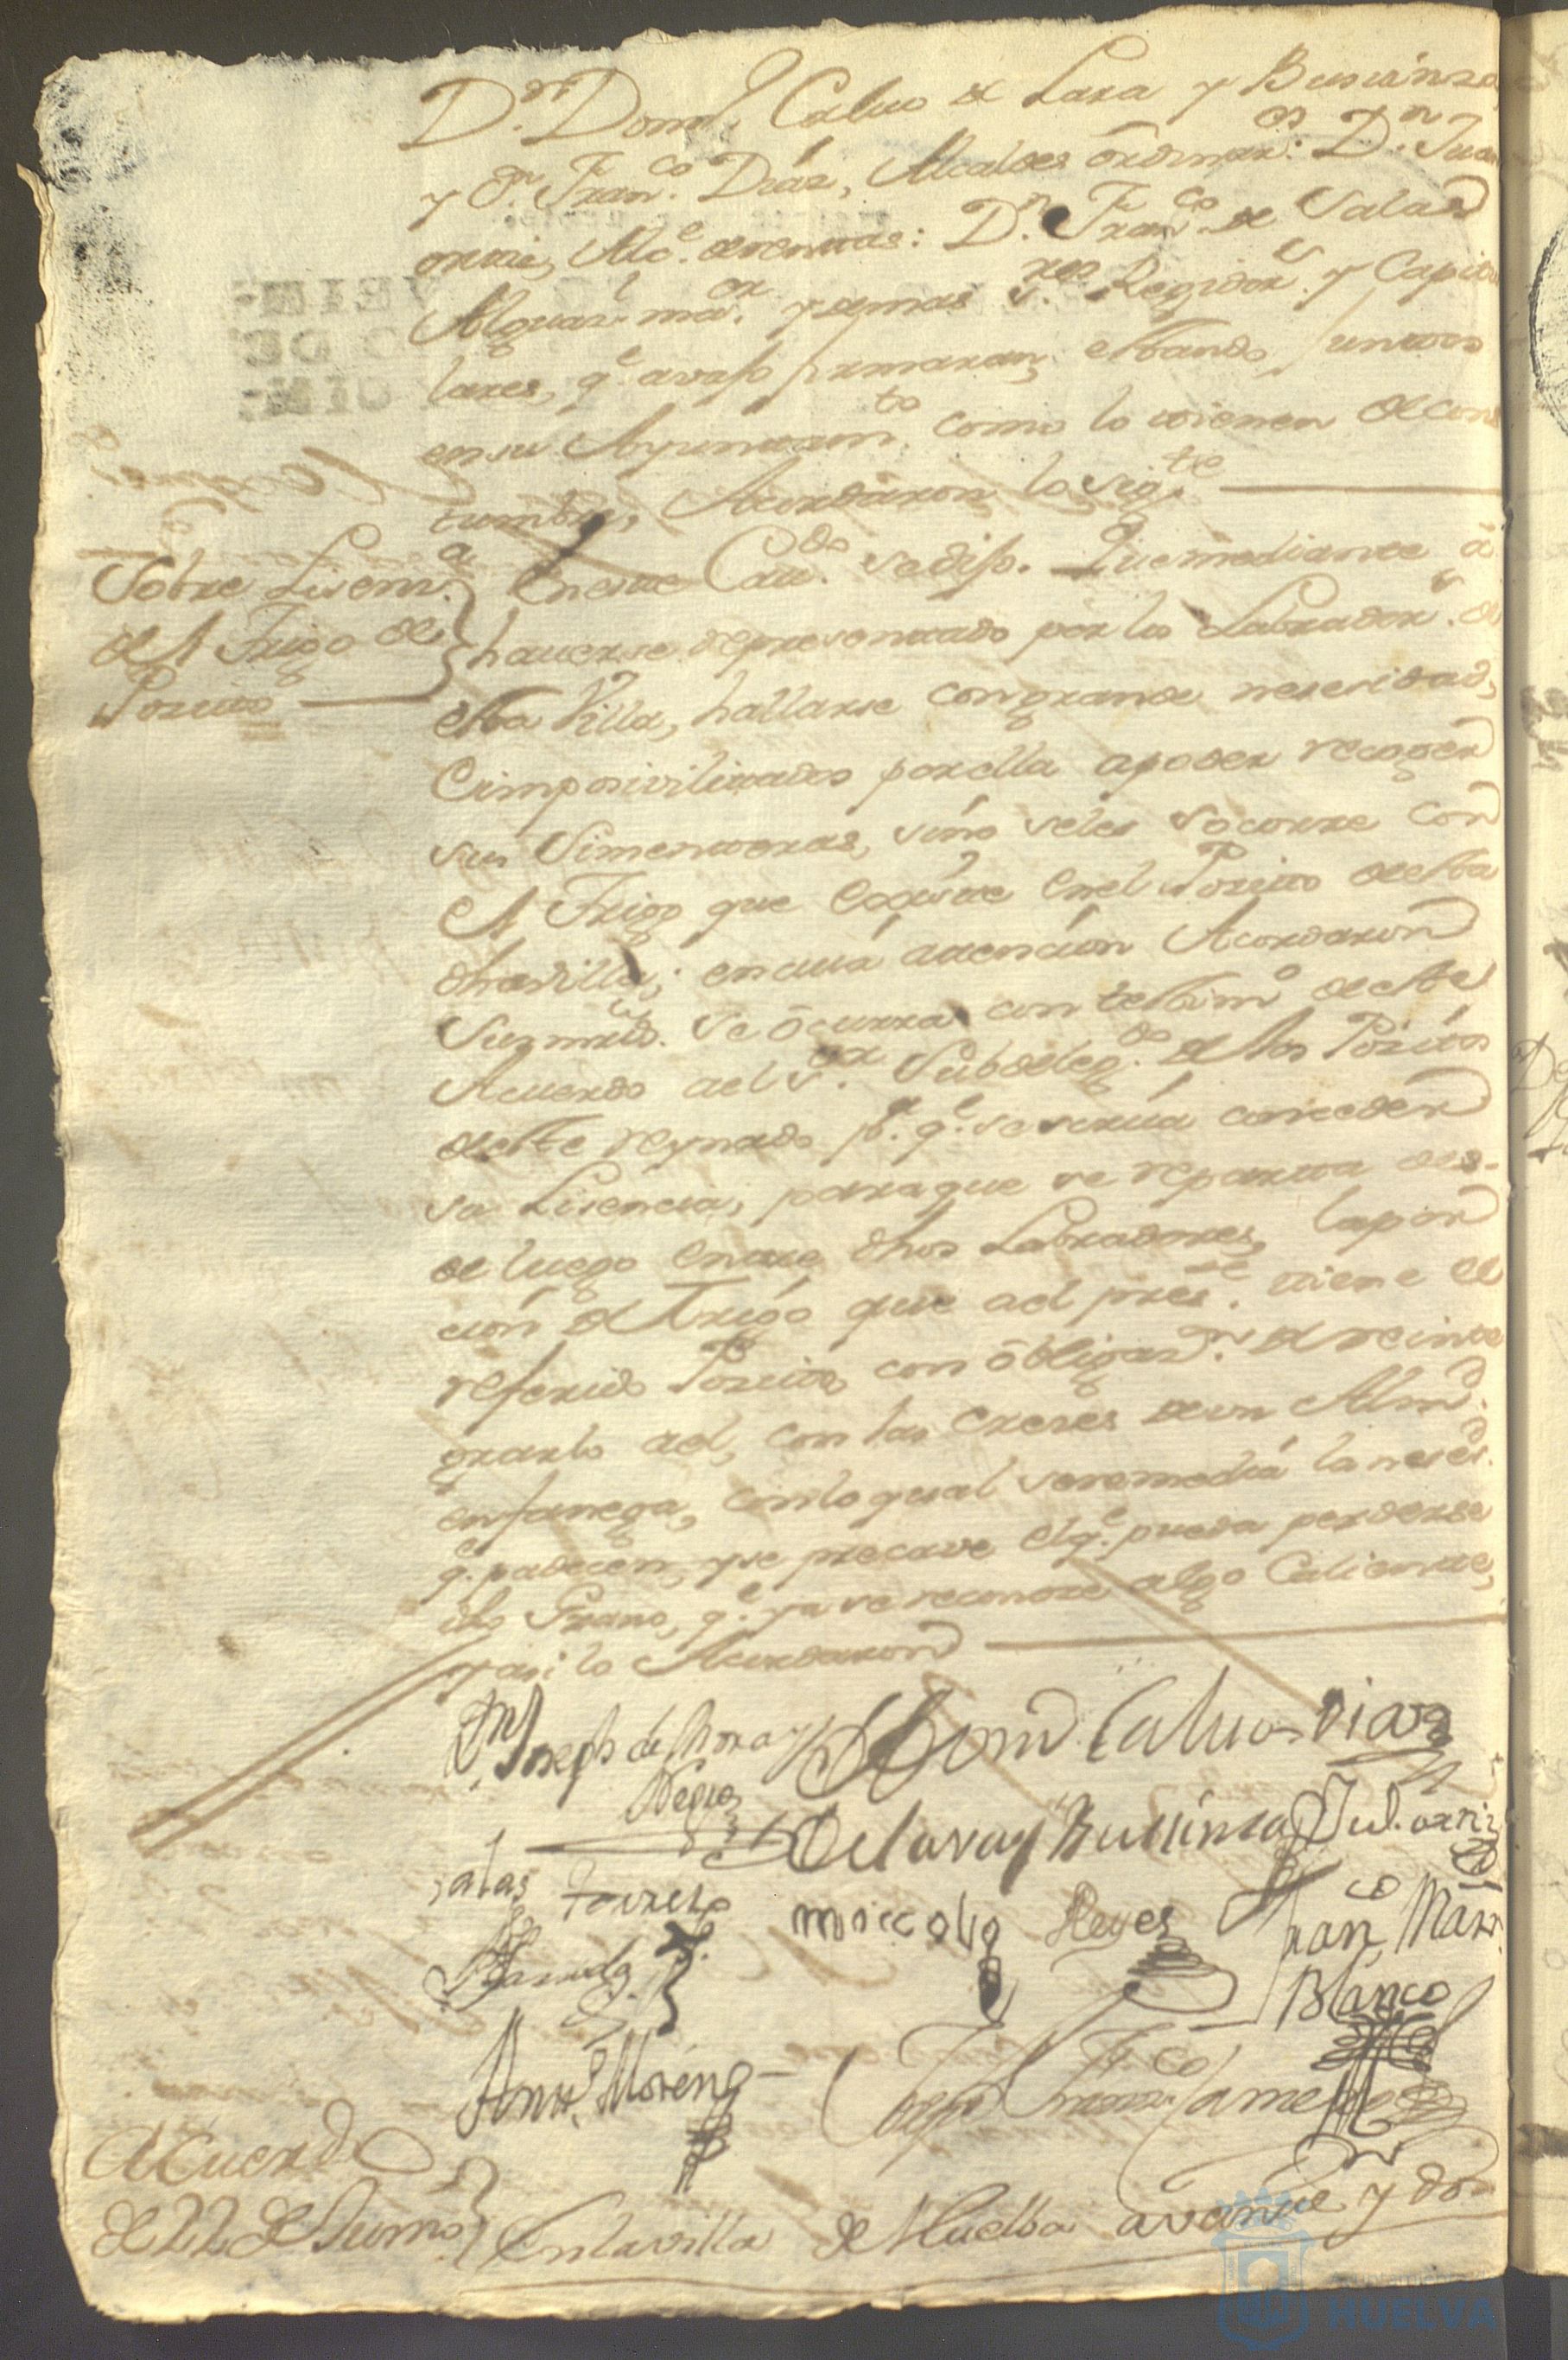 Dn. Domo. Calvo de Lara y Buisinza,
y Dn. Franco. Díaz, Alcaldes órdinars. Dn. Juan
Alce. de rentas: Dn. Franco. de Salas
Alguazl. maor. y demas Sres. Regidors. y Capitu
lares, qe. avajo firmaran, estando juntos
en su Ayuntamto. como lo tienen de cos
tumbre, Acordaron lo sigte.
Sobre Lisenza.
del Trigo del
Posito
En este Cavdo. se dijo. Que mediante â
haverse representado por los Labradors. de
esta Villa, hallarse con grande nesesidad,
e imposivilitados por ella a poder recoger
sus Simenteras, sino se les socorre con
el Trigo que existe en el Posito desta
dha villa; en cuia atencion Acordaron
sus mrds. se ôcurra con testimo. de este
Acuerdo al Sor. Subdelegdo. de los Positos
de este reynado pa. qe. se sirva conceder
su Lisencia, para que se reparta des-
de luego entre dhos Labradores, la por
cion de Trigo que al preste. tiene el
referido Posito, con ôbligazn. de reinte
grarlo al, con las creses de un Almd.
en fanega, con lo qual se remedia la nesesd.
qe. padecen, y se precave el qe. pueda perderse
dho Grano, qe. ya se reconoce algo Caliente,
y asi lo Acordaron
Dn. Joseph de Mora y
Negro
Domo. Calvo Diaz
de Lara y Buisinza
salas torres
niccolas Reyes
Fran co Marn.
Blanco
Anto. Moreno
Acuerdo
de 22 de Junio
En la villa de Huelba a veinte y dos
Ayuntamiento de
HUELVA